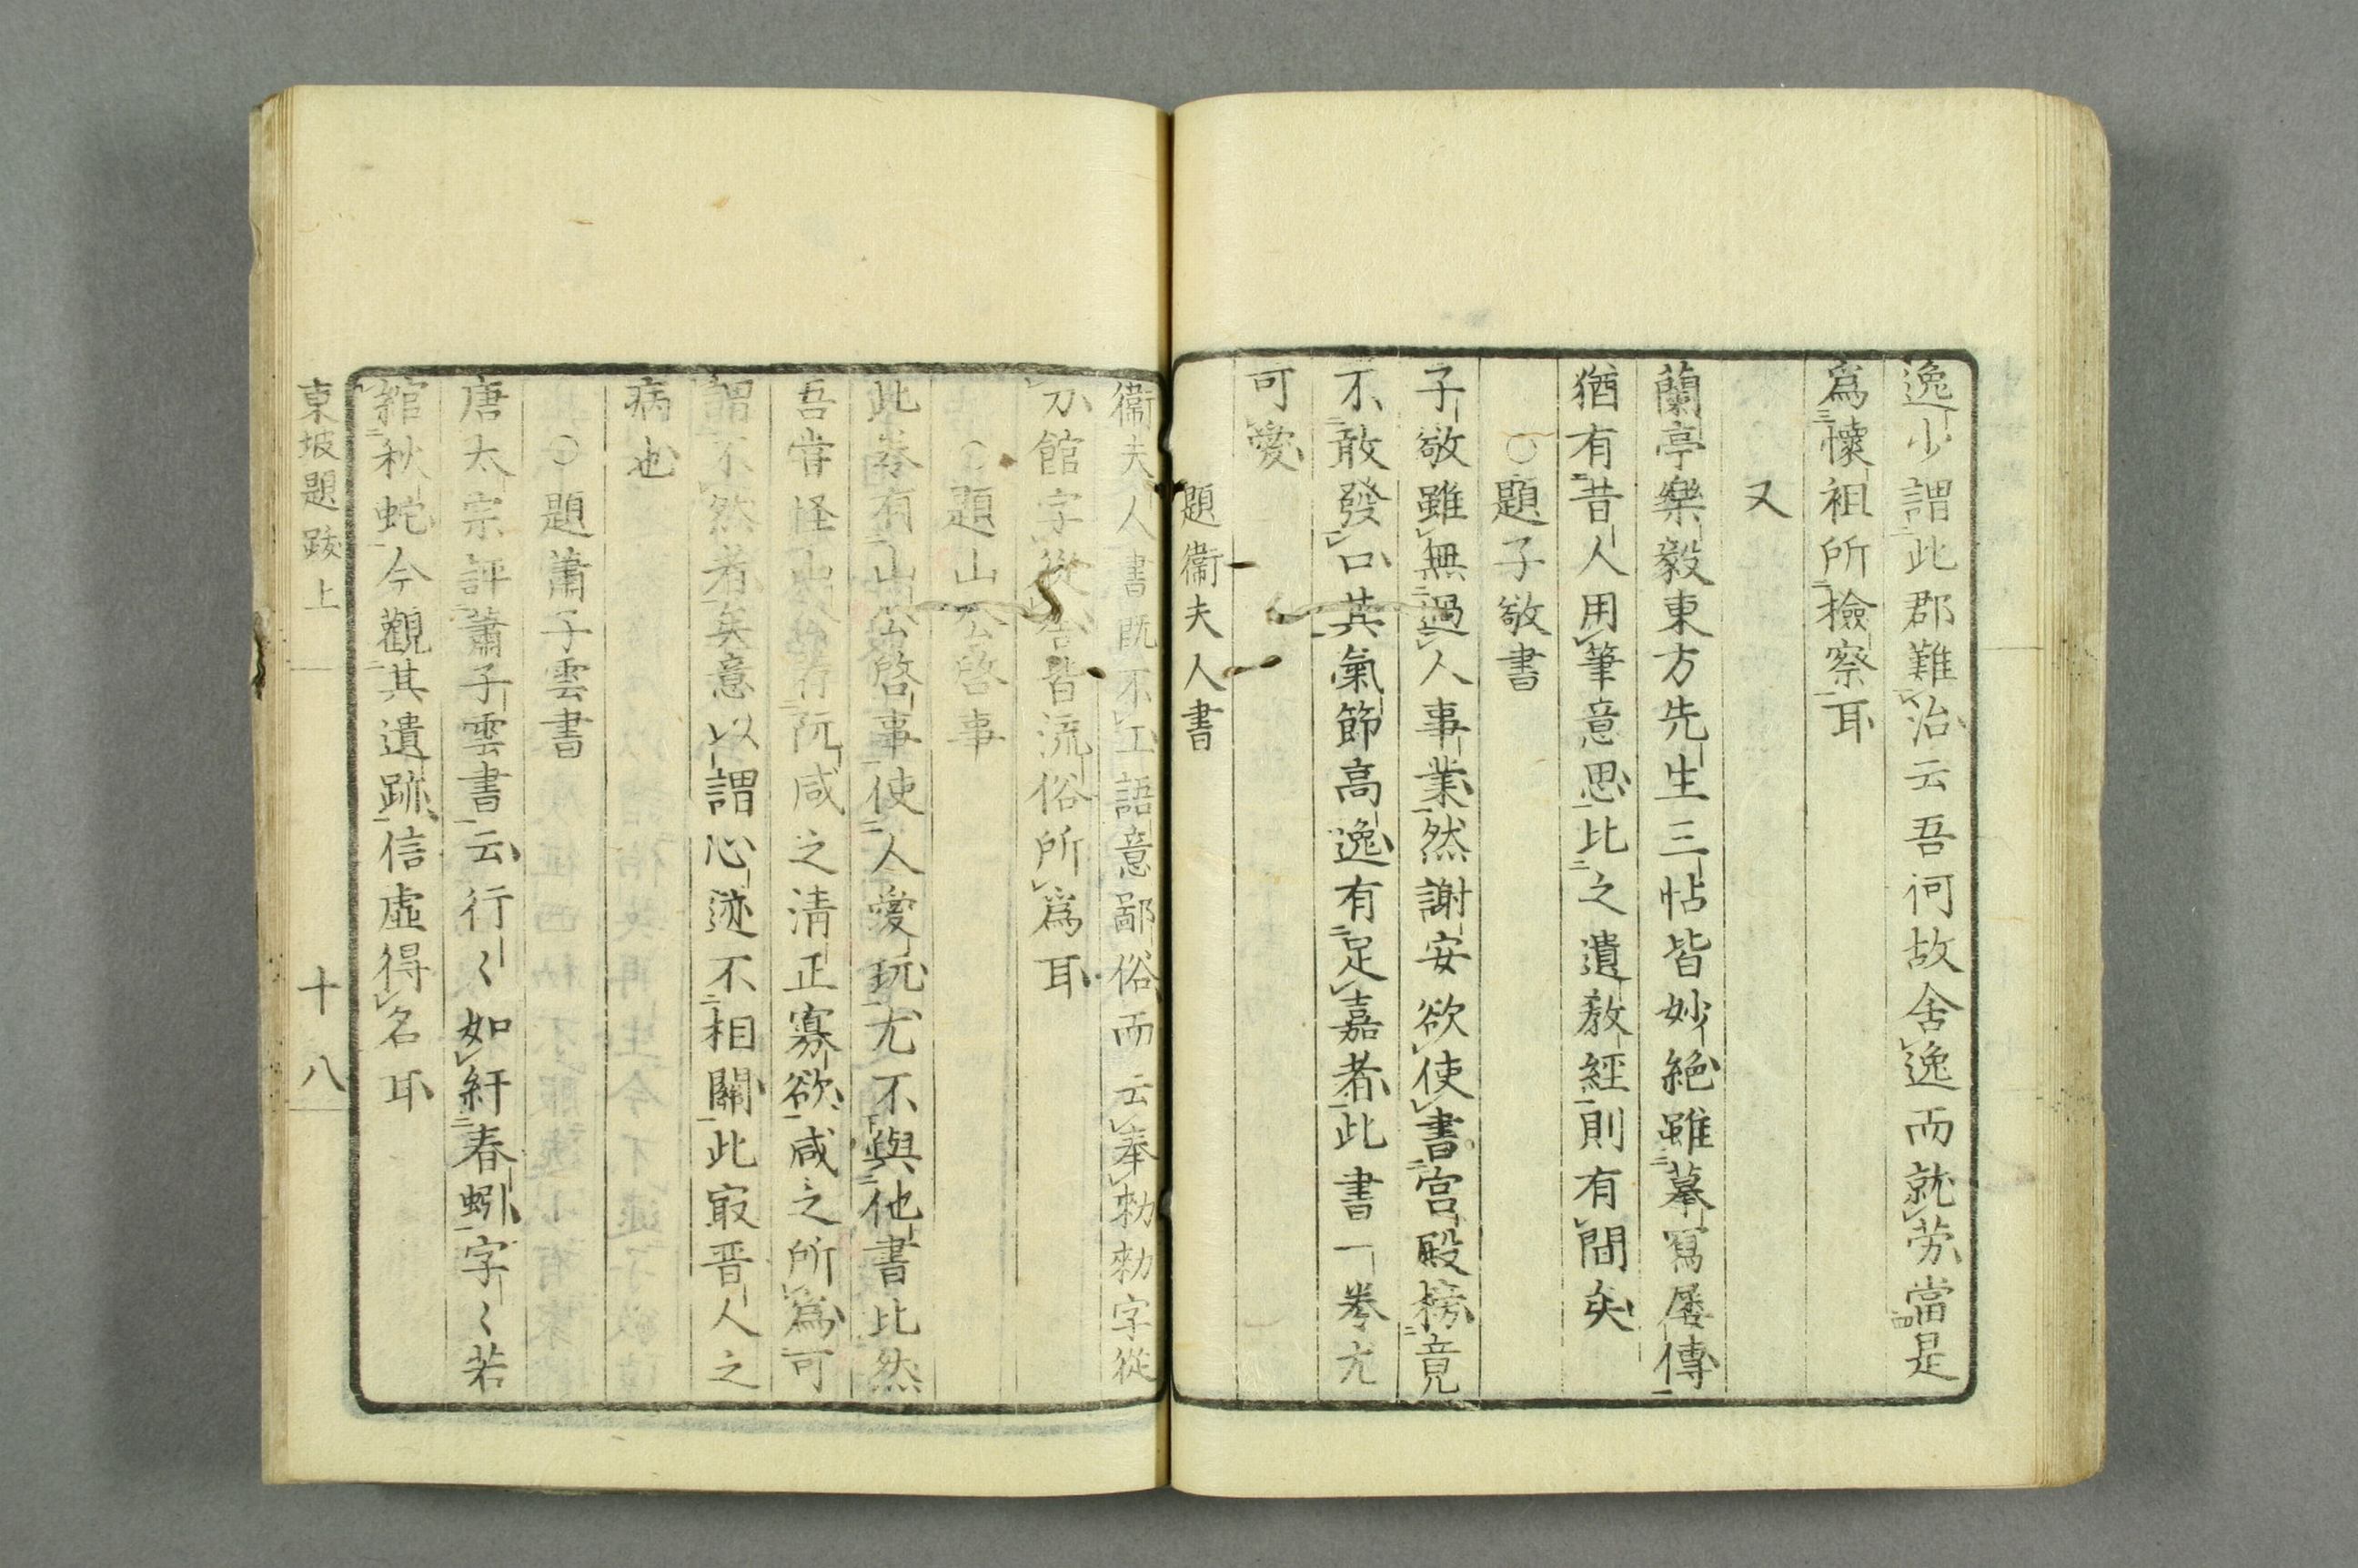 逸少謂此郡難治云吾何故舍逸而就劳當是
爲懷祖所撿察耳
又
蘭亭樂毅東方先生三帖皆妙絶雖摹寫屡傳
猶有昔人用筆意思比之遺教經則有間矣
○題子敬書
子敬雖無過人事業然謝安欲使書宫殿榜竟
不敢發口其氣節高逸有足嘉者此書一卷尤
可愛
題衞夫人書
衞夫人書既不工語意鄙俗而云奉勑勑字從
力館字從舍皆流俗所爲耳
○題山公啓事
此卷有山公啓事使人愛玩尤不與他書比然
吾甞怪山公薦阮咸之清正寡欲咸之所爲可
謂不然者矣意以謂心迹不相關此㝡晋人之
病也
○題蕭子雲書
唐太宗評蕭子雲書云行〻如紆春蚓字〻若
綰秋蛇今觀其遺跡信虚得名耳
東坡題跋上 十八